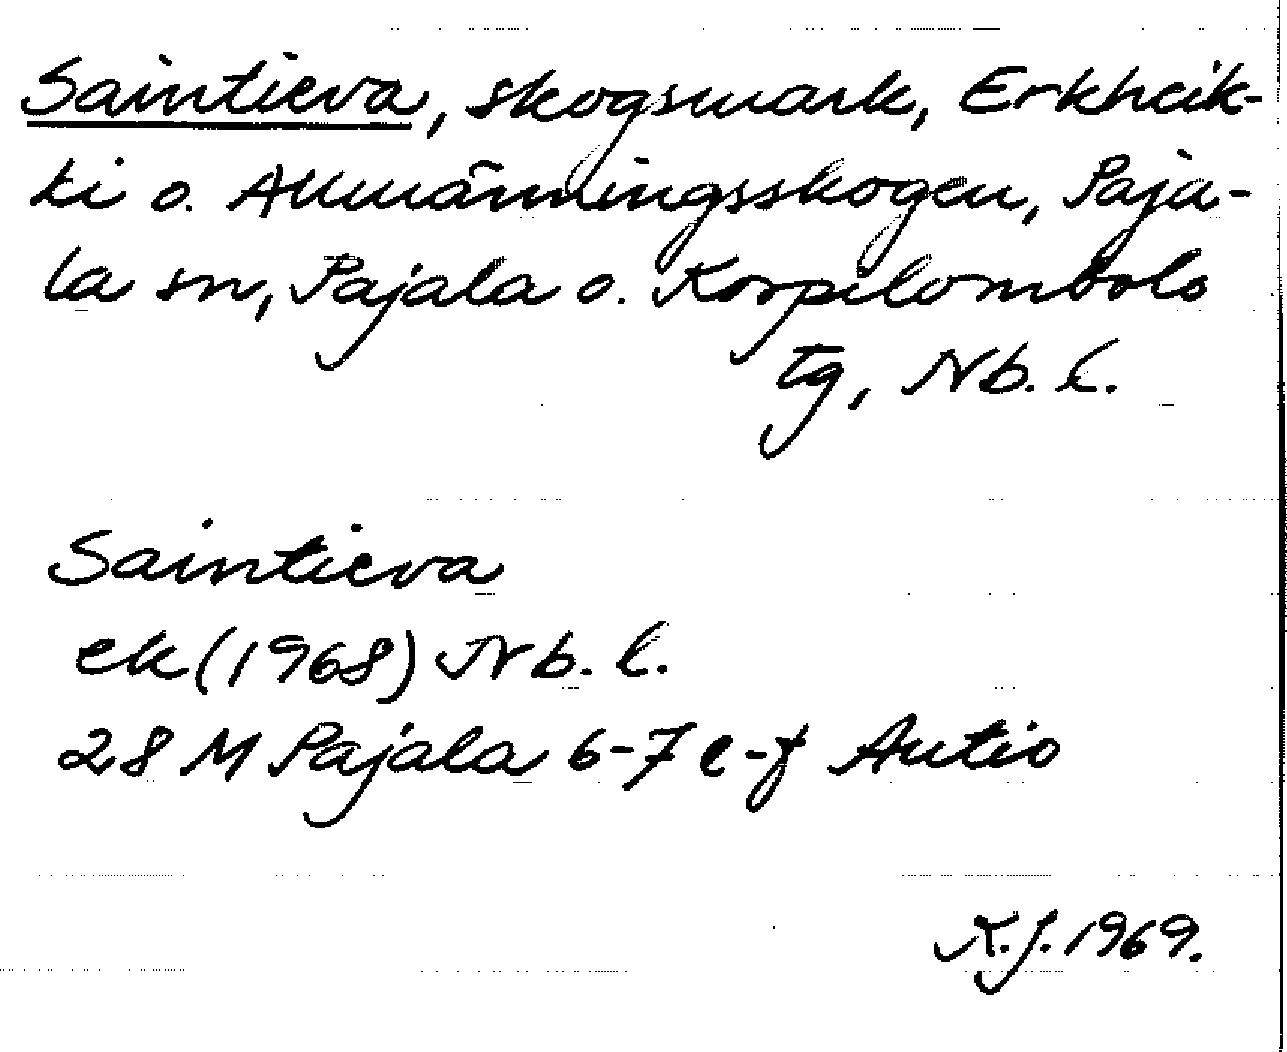 Saintieva, skogsmark, Erkheik-
ki o. Allmänningsskogen, Paja-
la sn, Pajala o. Korpilombolo
tg, Nb. l.
Saintieva
ek (1968) Nb. l.
28 M Pajala 6-7 e-f Autio
K.J. 1969.